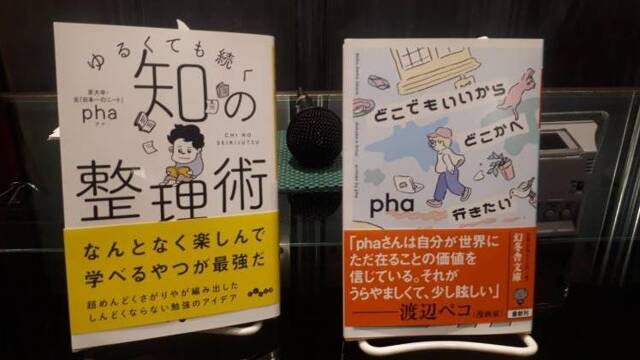 ゆるくても続く
京大卒・
元「日本一のニート」
pha
ファ
知の
CHI NO
SEIRIJUTSU
整理術
なんとなく楽しんで
学べるやつが最強だ
超めんどくさがりやが編み出した
しんどくならない勉強のアイデア
どこでもいいから
どこかへ
行きたい
pha
「phaさんは自分が世界に
ただ在ることの価値を
信じている。それが
うらやましくて、少し眩しい」
渡辺ペコ(漫画家)
幻冬舎文庫
最新刊